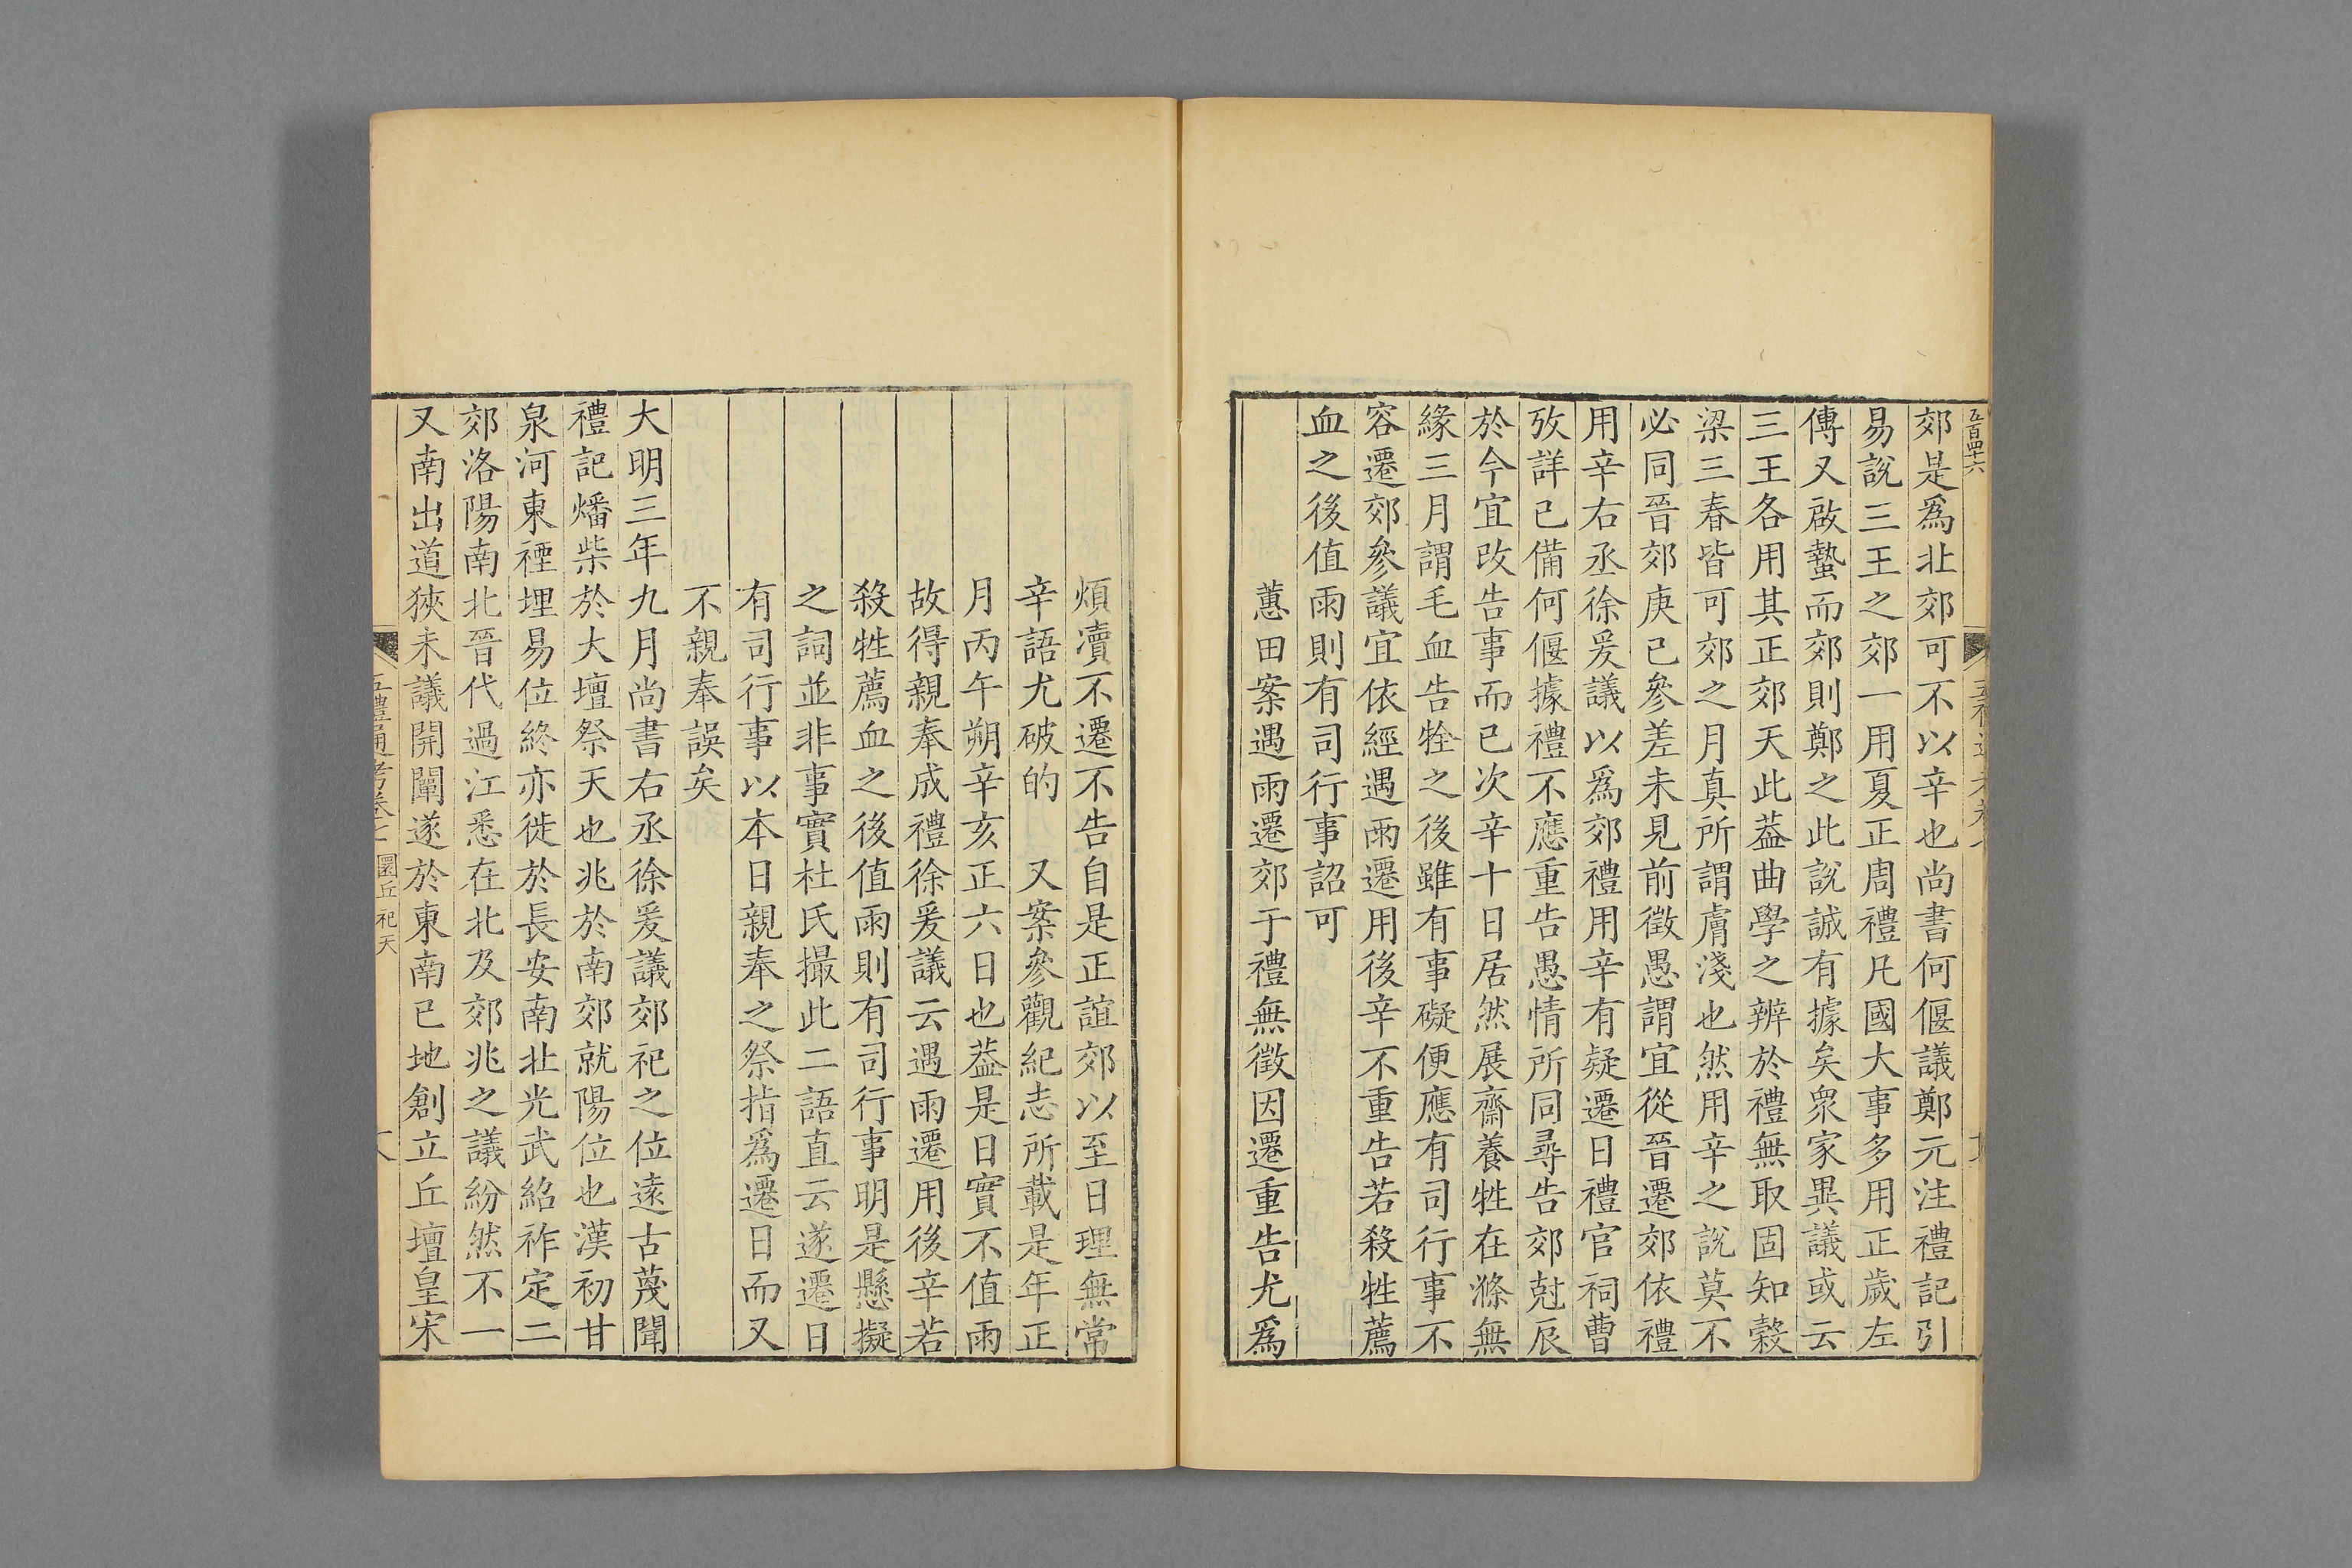 五百四十六
郊是爲北郊可不以辛也尚書何偃議鄭元注禮記引
易說三王之郊一用夏正周禮凡國大事多用正歲左
傳又啟蟄而郊則鄭之此說誠有據矣衆家異議或云
三王各用其正郊天此葢曲學之辨於禮無取固知穀
梁三春皆可郊之月真所謂膚淺也然用辛之說莫不
必同晉郊庚已參差未見前徵愚謂宜從晉遷郊依禮
用辛右丞徐爰議以爲郊禮用辛有疑遷日禮官祠曹
攷詳已備何偃據禮不應重告愚情所同尋告郊尅辰
於今宜改告事而已次辛十日居然展齋養牲在滌無
緣三月謂毛血告牷之後雖有事礙便應有司行事不
容遷郊參議宜依經遇雨遷用後辛不重告若殺牲薦
血之後值雨則有司行事詔可
蕙田案遇雨遷郊于禮無徵因遷重告尤爲
煩瀆不遷不告自是正誼郊以至日理無常
辛語尤破的 又案參觀紀志所載是年正
月丙午朔辛亥正六日也葢是日實不值雨
故得親奉成禮徐爰議云遇雨遷用後辛若
殺牲薦血之後值雨則有司行事明是懸擬
之詞並非事實杜氏撮此二語直云遂遷日
有司行事以本日親奉之祭指爲遷日而又
不親奉誤矣
大明三年九月尚書右丞徐爰議郊祀之位遠古蔑聞
禮記燔柴於大壇祭天也兆於南郊就陽位也漢初甘
泉河東禋埋易位終亦徙於長安南北光武紹祚定二
郊洛陽南北晉代過江悉在北及郊兆之議紛然不一
又南出道狹未議開闡遂於東南已地創立丘壇皇宋
五禮通考卷七 圜丘祀天